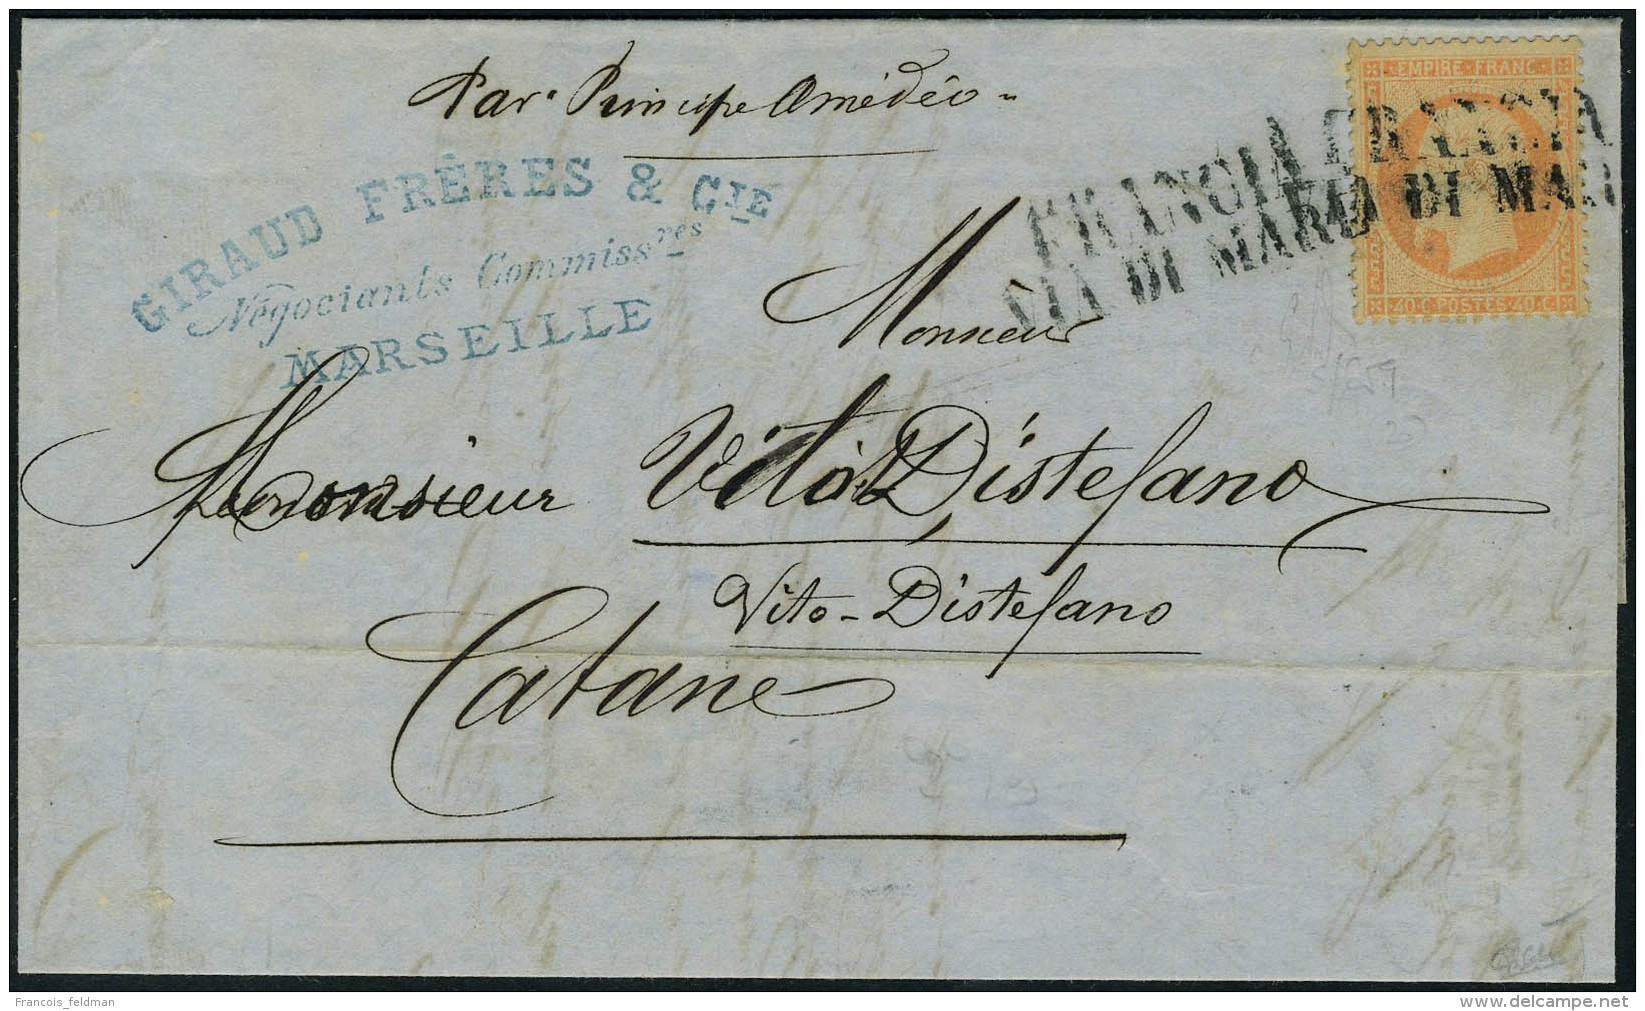 Par Principe Amédéo
GIRAUD FRÈRES & CIE
Négociants Commissres
MARSEILLE
EMPIRE FRANC
40 C POSTES 40 C
FRANCIA FRANCIA
VIA DI MARE VIA DI MAR
Monsieur
Monsieur Vito Distefano
Vito - Distefano
Catane
Francois_feldman
delcampe.net